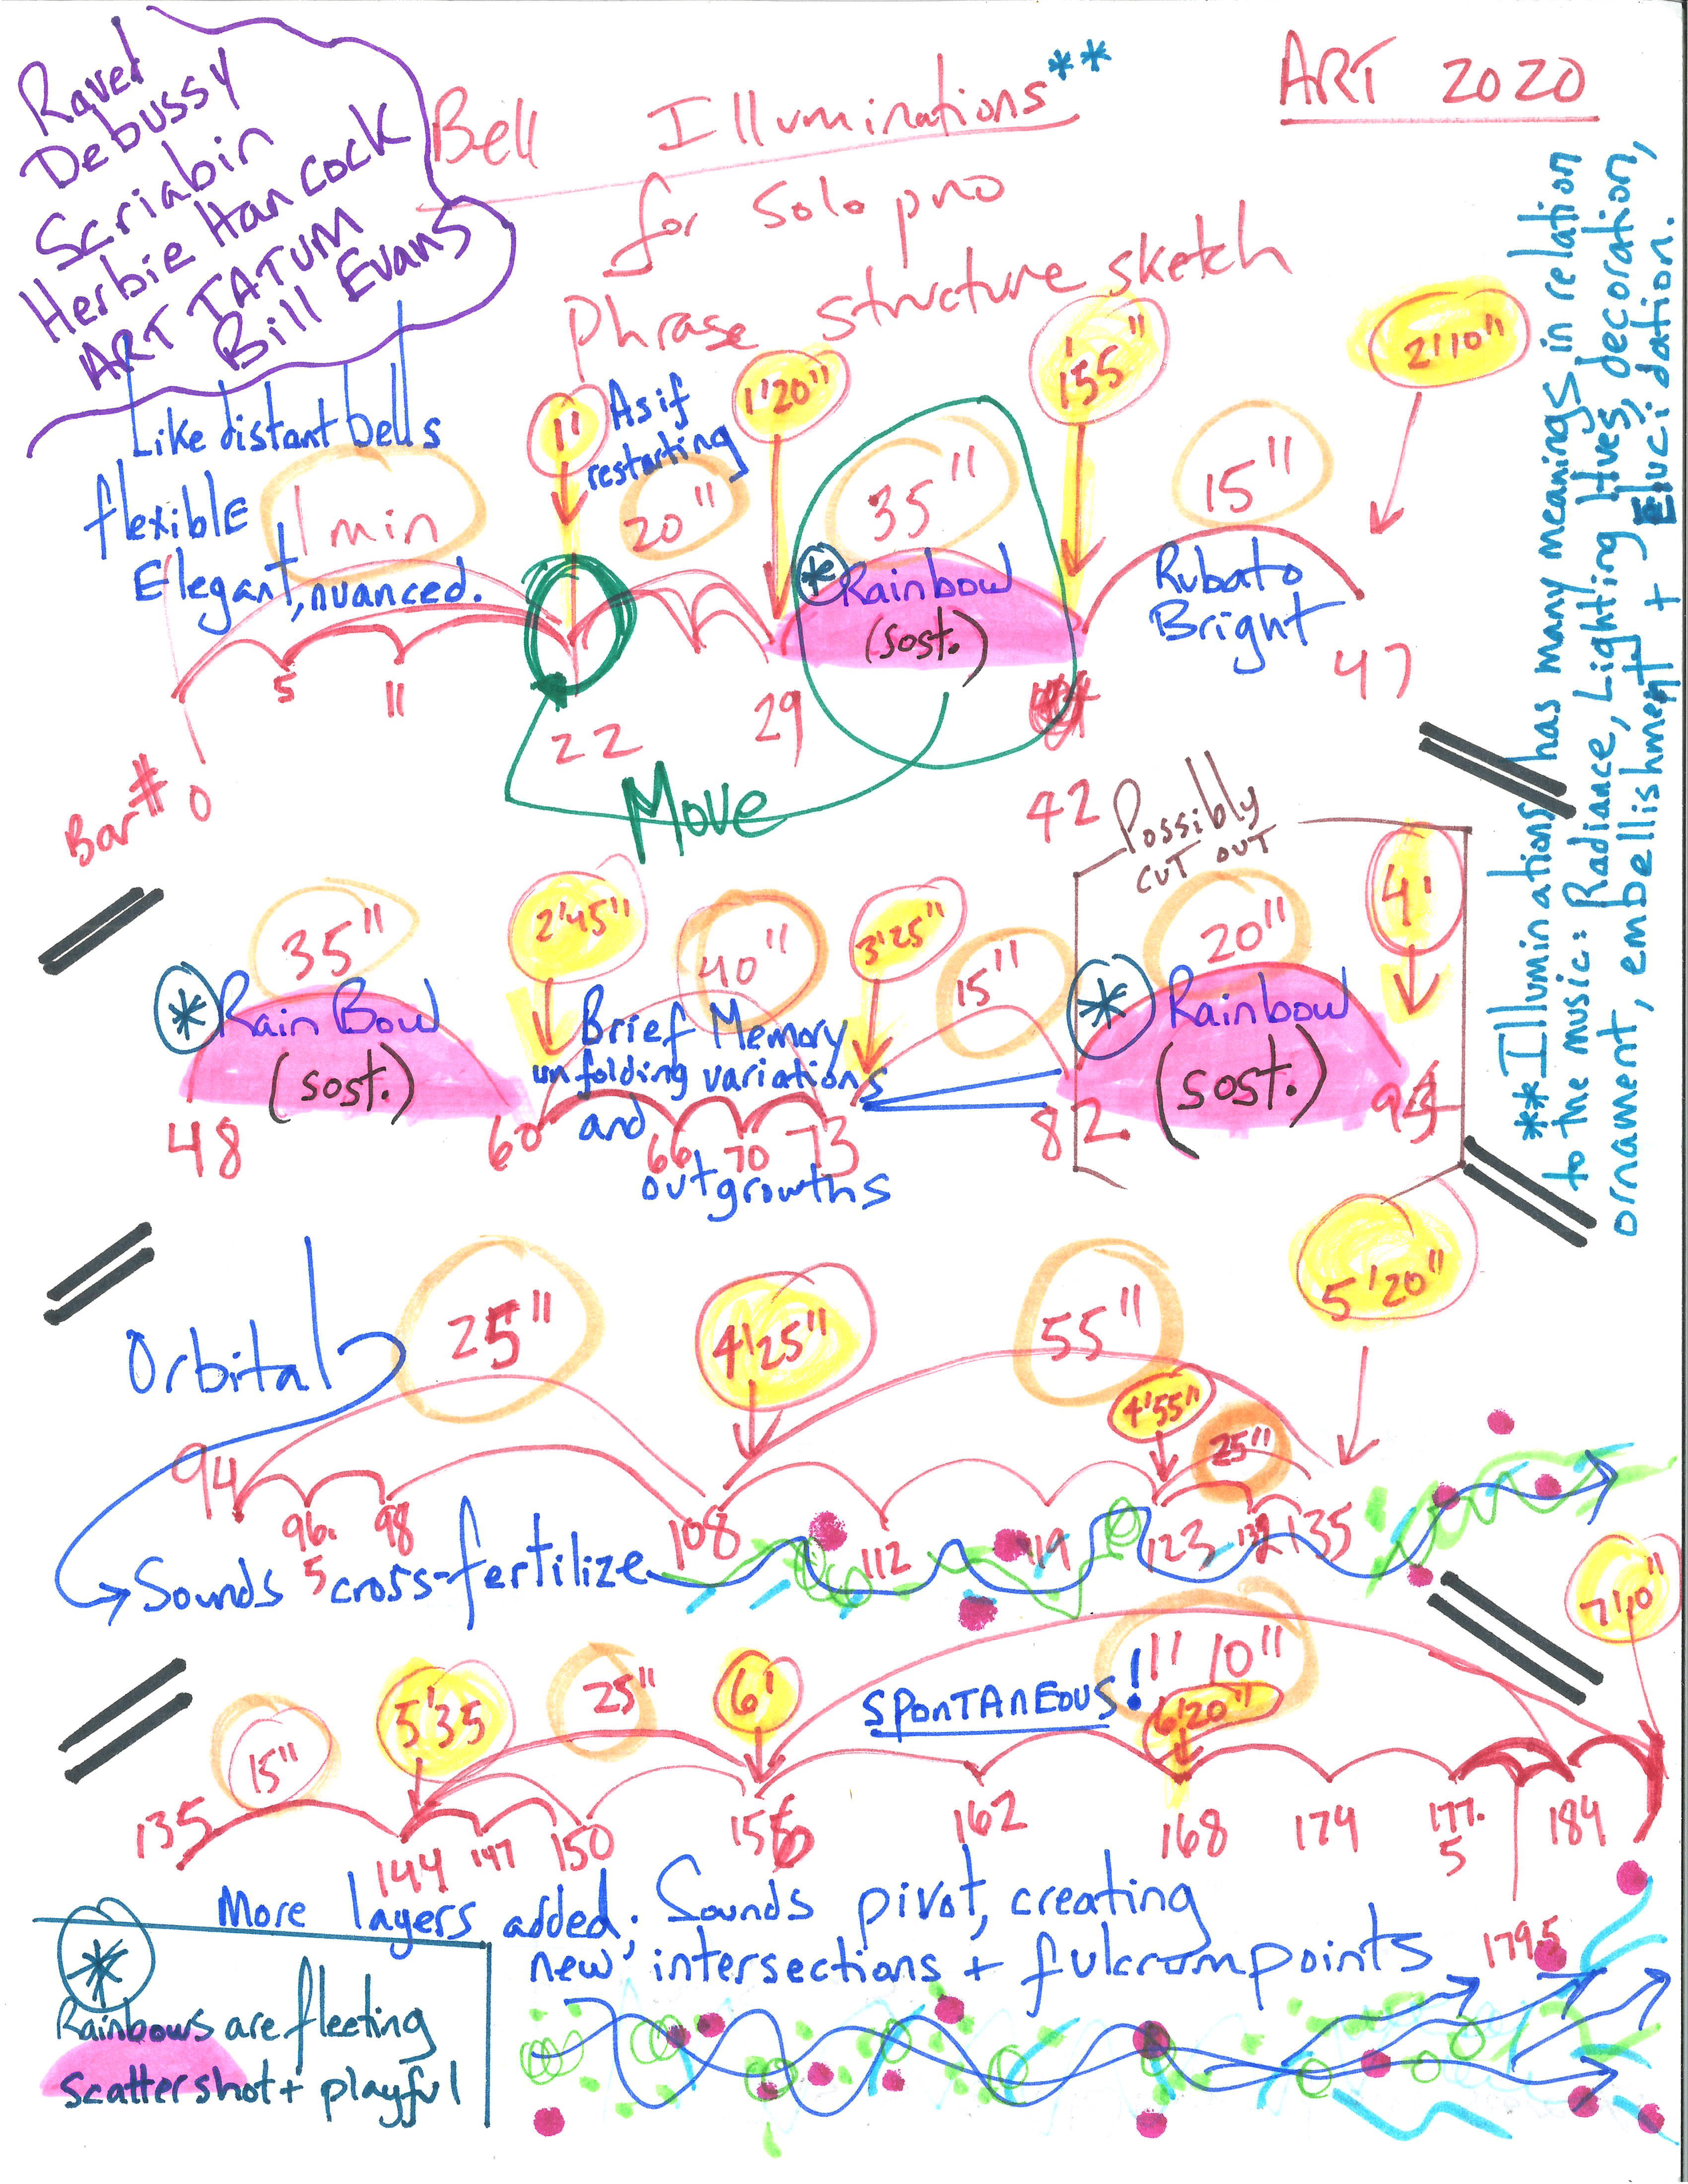 Ravel
Debussy
Scriabin
Herbie Hancock
ART TATUM
Bill Evans
Bell Illuminations**
for solo pno
Phrase structure sketch
ART 2020
Like distant bells
flexiblE
Elegant, nuanced.
1 min
1'
As if
restarting
20"
1'20"
35"
* Rainbow
(sost.)
1'55"
15"
Rubato
Bright
2'10"
Bar # 0
5
11
22
29
42
47
Move
**Illuminations has many meanings in relation
to the music: Radiance, Lighting Hues, decoration,
ornament, embellishment + Elucidation.
35"
* RainBow
(sost.)
2'45"
40"
Brief Memory
unfolding variations
and
outgrowths
3'25"
15"
Possibly
CUT OUT
20"
* Rainbow
(sost.)
4'
48
60
66
70
73
82
94
Orbital
25"
4'25"
55"
4'55"
25"
5'20"
94
96.
5
98
108
112
119
123
132
135
Sounds cross-fertilize
15"
5'35
25"
6'
SPONTANEOUS!
1' 10"
6'20"
7'10"
135
144
147
150
156
162
168
174
177.
5
184
179.5
More layers added; Sounds pivot, creating
new intersections + fulcrumpoints
*
Rainbows are fleeting
scattershot + playful